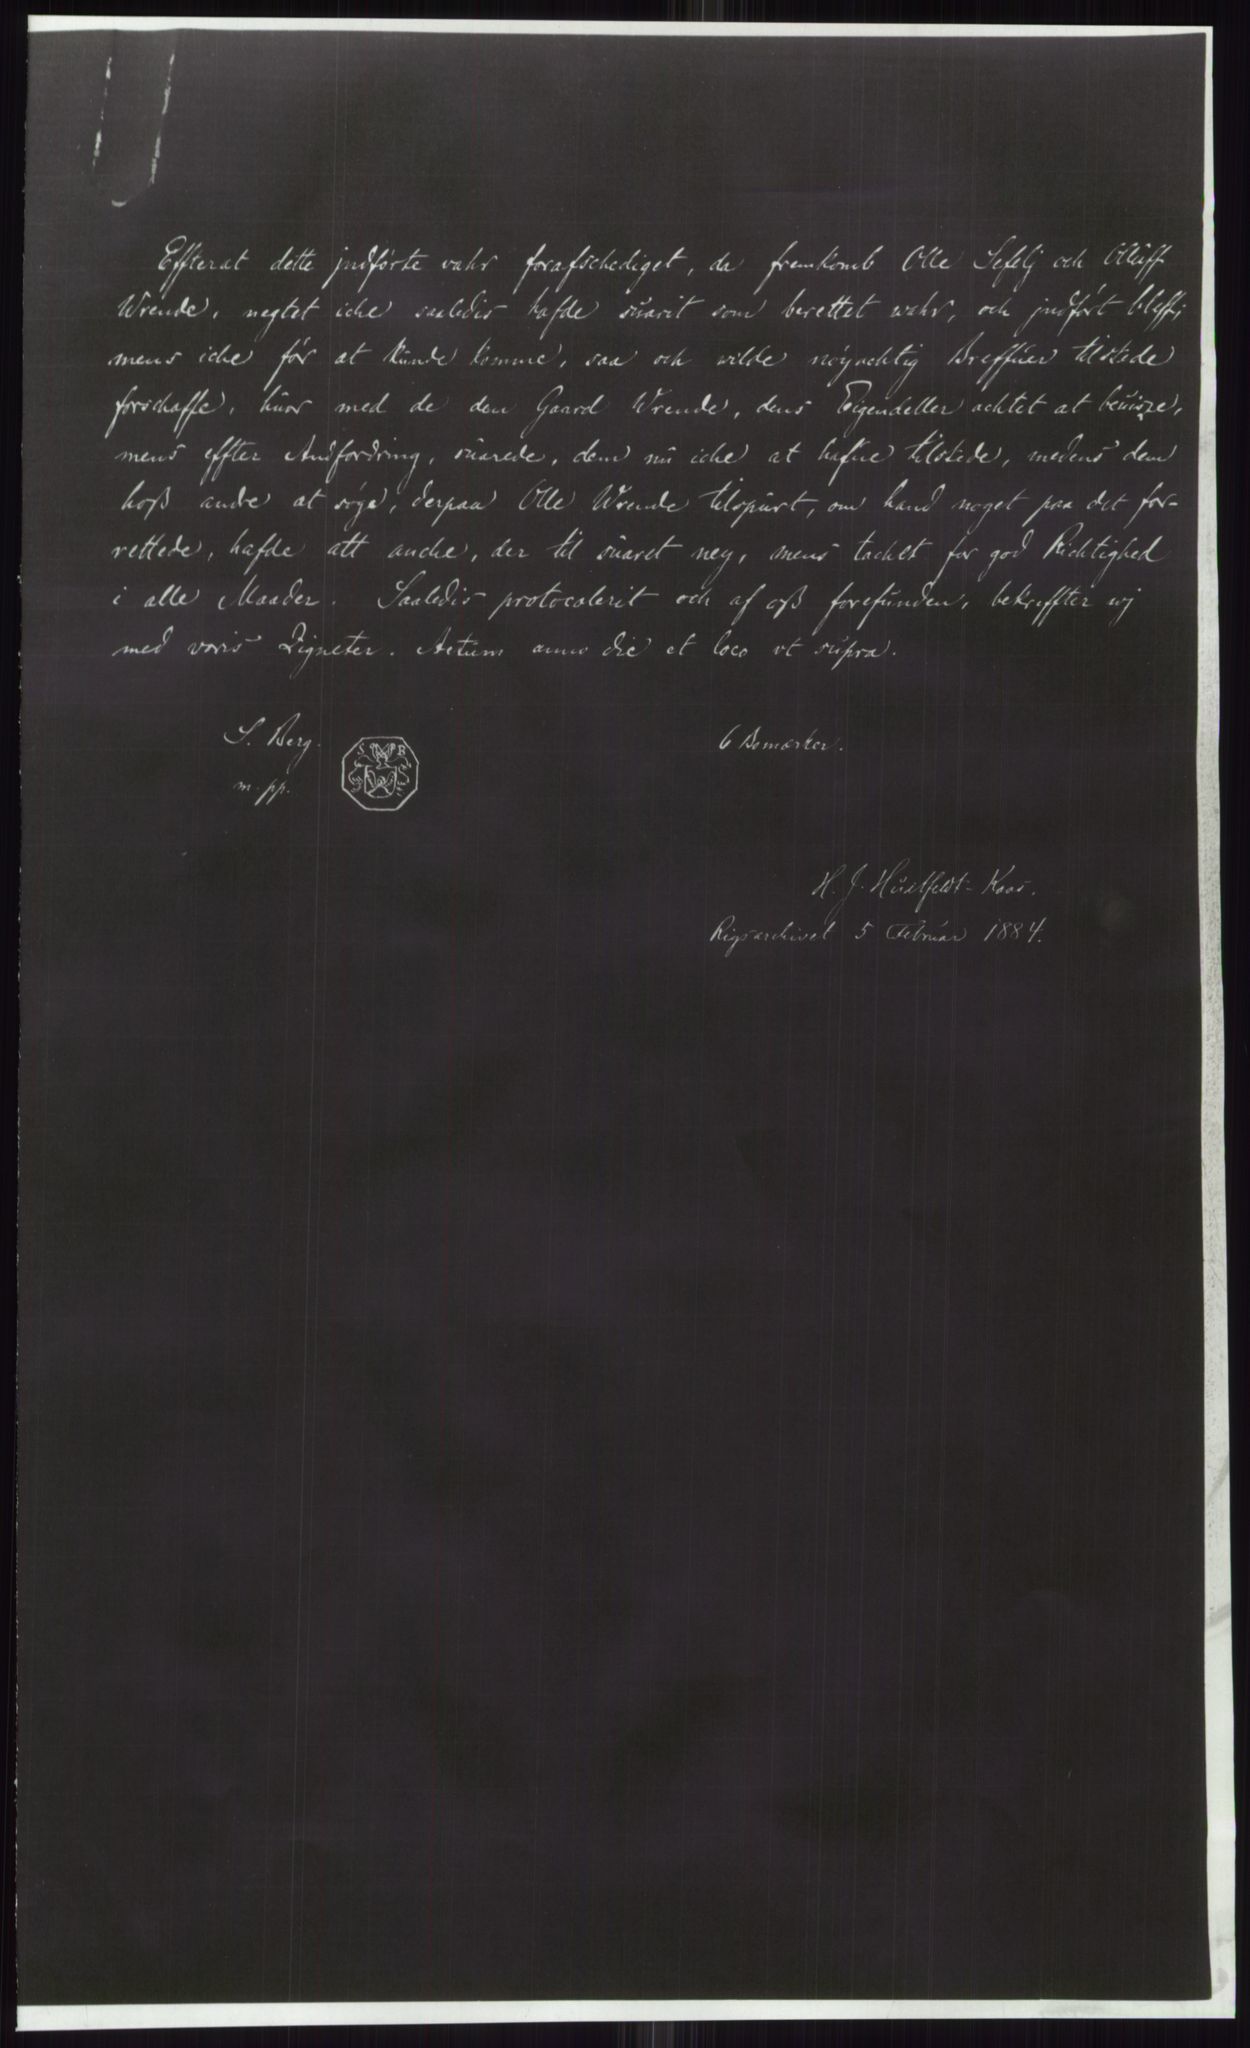 Effterat dette jndførte vahr forafschediget, da fremkomb Olle Sefelj och Olluff
Wrende, negtet iche saaledis hafde suarit som berettet wahr, och jndført bleff;
mens iche før at kunde komme, saa och wilde nøyachtig Breffuer tilstede
forschaffe, huor med de den Gaard Wrende, dens Eigendeller achtet at beuisze,
mens effter Andfordring, suarede, dem nu iche at hafue tilstede, medens dem
hosz andre at søge, derpaa Olle Wrende tilspurt, om hand noget paa det for-
rettede, hafde att anche, der til suaret ney, mens tachet for god Richtighed
i alle Maader. Saaledis protocolerit och af osz forefunden, bekreffter wj
med voris Zigneter. Actum anno die et loco vt supra.
S. Berg. 6 Bomærker.
m. pp.
S B
H. J. Huitfeldt-Kaas.
Rigsarchivet 5 Februar 1884.